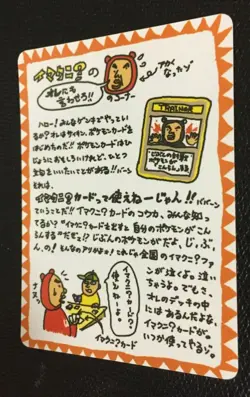 イマクニ?の
オレにも
言わせろ!!
のコーナー
アカく
なったゾ
TRAINER
ハロー!みんなゲンキにやってい
るか?オレはサイキン、ポモカンカードを
はじめたのだ!!ポケモンカードはひ
じょうにおもしろいけれど、ひとつ
文句をいいたいことがある!!ババーン
それは、
イマクニ?カードって使えねーじゃん!!ババーン
ていうことだ!!イマクニ?カードのコウカ、みんな知っ
てるか?“イマクニ?カードを出すと自分のポケモンがこん
らんする”だぞ!?じぶんのポケモンがだよ、じ、ぶ、
ん、の!そんなのアリかよ!これじゃ全国のイマクニ?ファ
ンが泣くよ。泣い
ちゃうよ。でもさ、
オレのデッキの中
にはあるんだよな、
イマクニ?カードが。
いつか使ってやるゾ。
イマクニ?カード?
使えねーよ。
イマクニ?カード